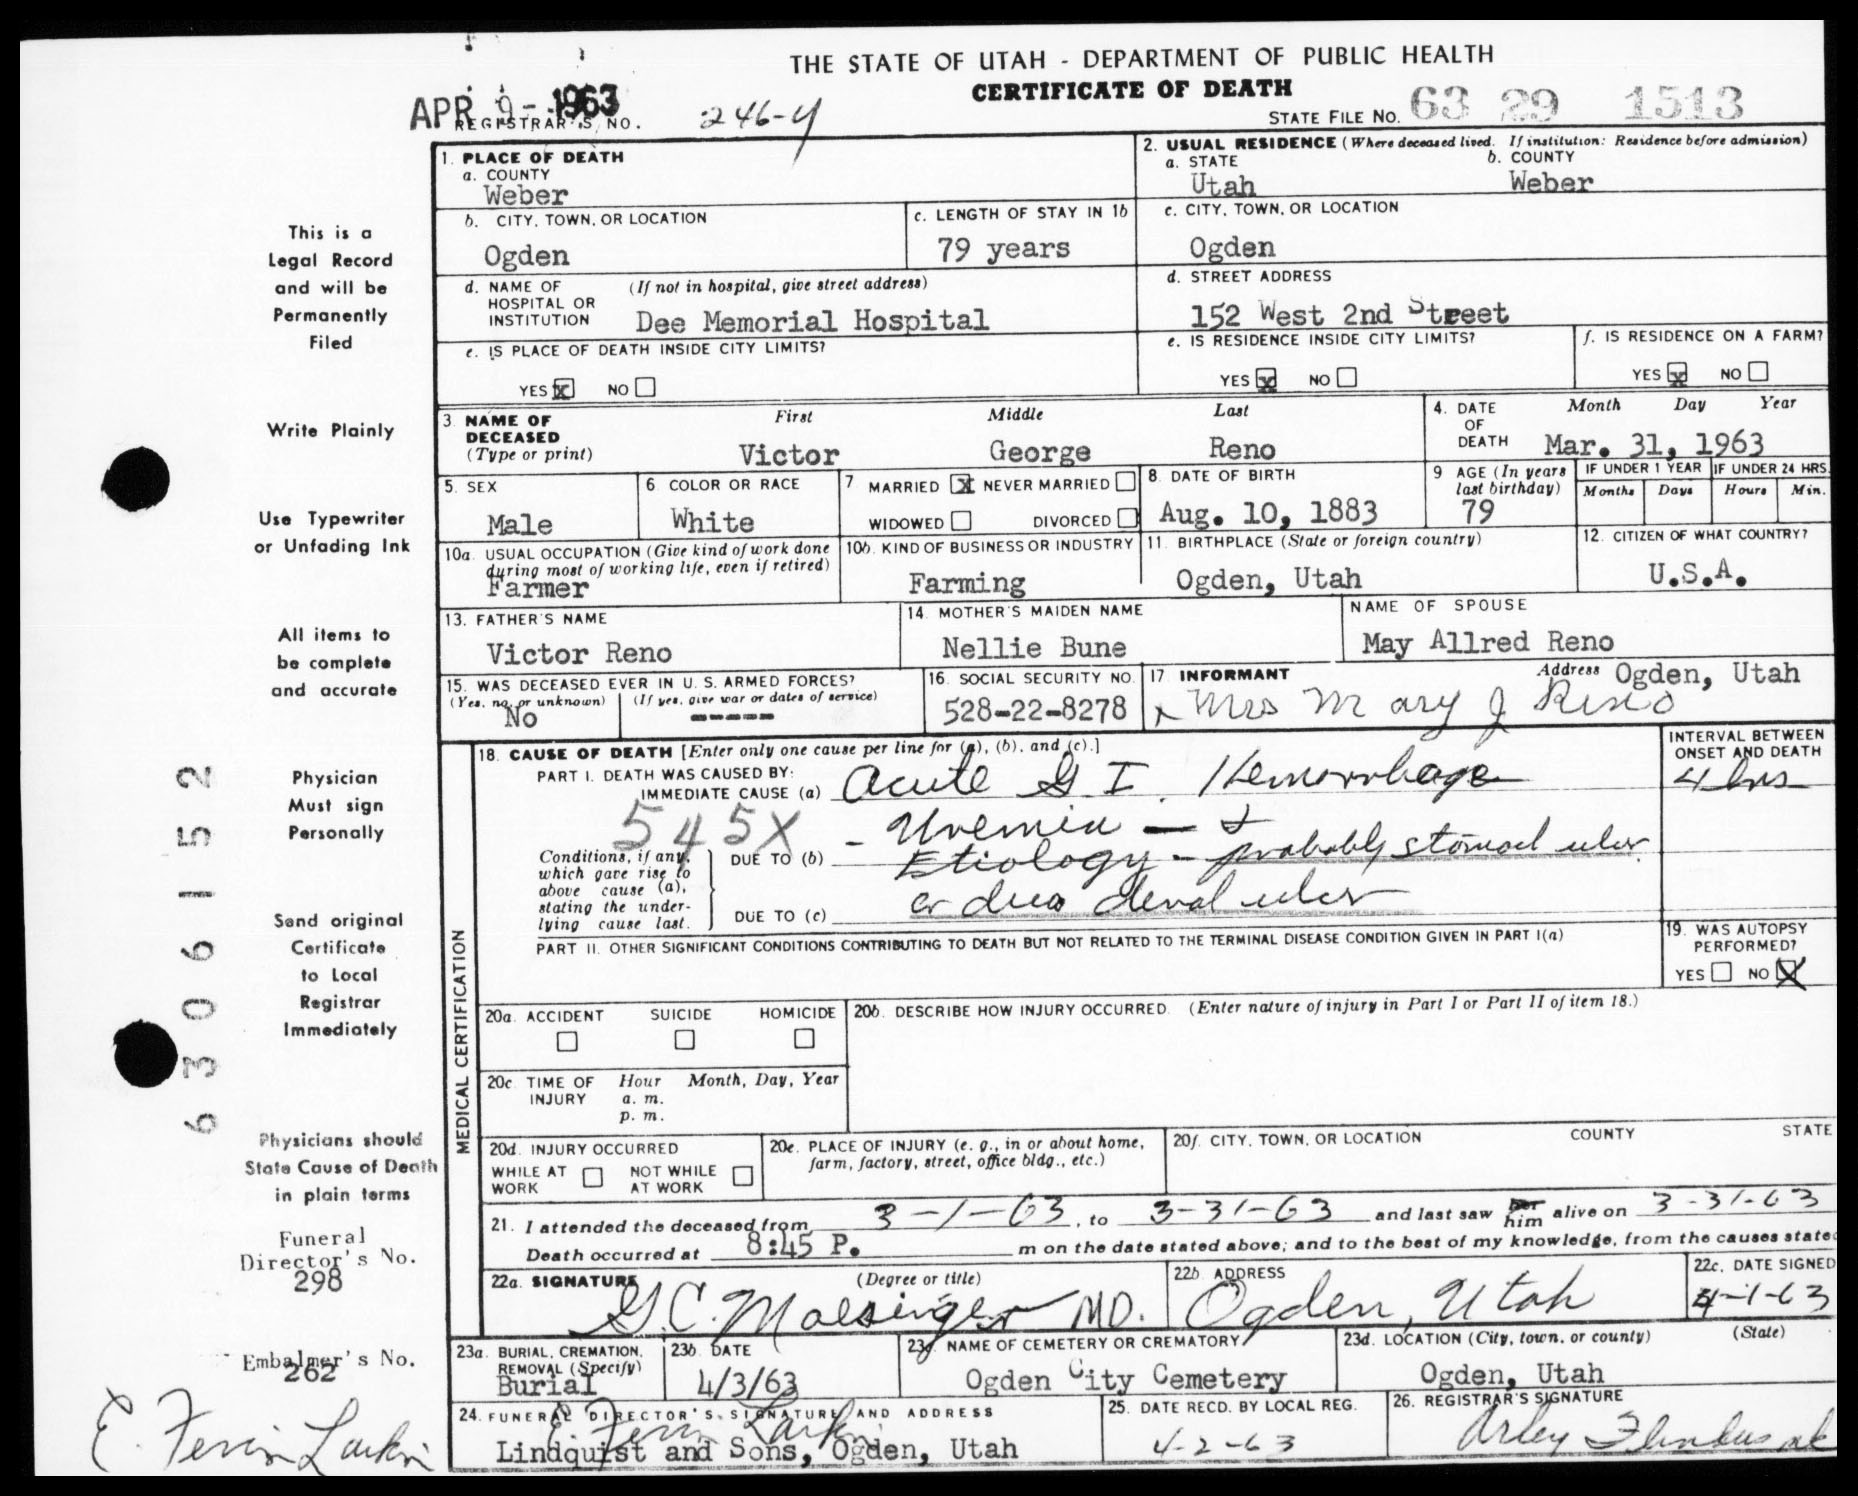 THE STATE OF UTAH - DEPARTMENT OF PUBLIC HEALTH
CERTIFICATE OF DEATH
APR 9 - 1963
REGISTRAR'S NO. 246-Y
STATE FILE NO. 63 29 1513
1. PLACE OF DEATH
a. COUNTY
Weber
2. USUAL RESIDENCE (Where deceased lived. If institution: Residence before admission)
a. STATE b. COUNTY
Utah Weber
b. CITY, TOWN, OR LOCATION
Ogden
c. LENGTH OF STAY IN 1b
79 years
c. CITY, TOWN, OR LOCATION
Ogden
d. NAME OF HOSPITAL OR INSTITUTION
(If not in hospital, give street address)
Dee Memorial Hospital
d. STREET ADDRESS
152 West 2nd Street
e. IS PLACE OF DEATH INSIDE CITY LIMITS?
YES X NO
e. IS RESIDENCE INSIDE CITY LIMITS?
YES X NO
f. IS RESIDENCE ON A FARM?
YES X NO
3. NAME OF DECEASED (Type or print)
First Middle Last
Victor George Reno
4. DATE OF DEATH
Month Day Year
Mar. 31, 1963
5. SEX
Male
6. COLOR OR RACE
White
7 MARRIED X NEVER MARRIED
WIDOWED DIVORCED
8. DATE OF BIRTH
Aug. 10, 1883
9 AGE (In years last birthday)
79
IF UNDER 1 YEAR
Months Days
IF UNDER 24 HRS.
Hours Min.
10a. USUAL OCCUPATION (Give kind of work done during most of working life, even if retired)
Farmer
10b. KIND OF BUSINESS OR INDUSTRY
Farming
11. BIRTHPLACE (State or foreign country)
Ogden, Utah
12. CITIZEN OF WHAT COUNTRY?
U.S.A.
13. FATHER'S NAME
Victor Reno
14. MOTHER'S MAIDEN NAME
Nellie Bune
NAME OF SPOUSE
May Allred Reno
15. WAS DECEASED EVER IN U. S. ARMED FORCES?
(Yes, no, or unknown) (If yes, give war or dates of service)
No -----
16. SOCIAL SECURITY NO.
528-22-8278
17 INFORMANT Address Ogden, Utah
x Mrs Mary J Reno
MEDICAL CERTIFICATION
18. CAUSE OF DEATH [Enter only one cause per line for (a), (b), and (c).]
INTERVAL BETWEEN ONSET AND DEATH
PART I. DEATH WAS CAUSED BY:
IMMEDIATE CAUSE (a) Acute G I. Hemorrhage 4 hrs
545X - Uremia -
Conditions, if any, which gave rise to above cause (a), stating the underlying cause last.
DUE TO (b) Etiology - probably stomach ulcer
DUE TO (c) or duodenal ulcer
PART II. OTHER SIGNIFICANT CONDITIONS CONTRIBUTING TO DEATH BUT NOT RELATED TO THE TERMINAL DISEASE CONDITION GIVEN IN PART I(a)
19. WAS AUTOPSY PERFORMED?
YES NO X
20a. ACCIDENT SUICIDE HOMICIDE
20b. DESCRIBE HOW INJURY OCCURRED. (Enter nature of injury in Part I or Part II of item 18.)
20c. TIME OF INJURY
Hour Month, Day, Year
a. m.
p. m.
20d. INJURY OCCURRED
WHILE AT WORK NOT WHILE AT WORK
20e. PLACE OF INJURY (e. g., in or about home, farm, factory, street, office bldg., etc.)
20f. CITY, TOWN, OR LOCATION COUNTY STATE
21. I attended the deceased from 3-1-63, to 3-31-63 and last saw her him alive on 3-31-63
Death occurred at 8:45 P. m on the date stated above; and to the best of my knowledge, from the causes stated
22a. SIGNATURE (Degree or title)
MD.
22b. ADDRESS
Ogden, Utah
22c. DATE SIGNED
4-1-63
23a. BURIAL, CREMATION, REMOVAL (Specify)
Burial
23b. DATE
4/3/63
23c. NAME OF CEMETERY OR CREMATORY
Ogden City Cemetery
23d. LOCATION (City, town, or county) (State)
Ogden, Utah
24. FUNERAL DIRECTOR'S SIGNATURE AND ADDRESS
E. Fervin Larkin
Lindquist and Sons, Ogden, Utah
25. DATE RECD. BY LOCAL REG.
4-2-63
26. REGISTRAR'S SIGNATURE
This is a
Legal Record
and will be
Permanently
Filed
Write Plainly
Use Typewriter
or Unfading Ink
All items to
be complete
and accurate
Physician
Must sign
Personally
Send original
Certificate
to Local
Registrar
Immediately
Physicians should
State Cause of Death
in plain terms
Funeral
Director's No.
298
Embalmer's No.
262
E. Fervin Larkin
63 06 152